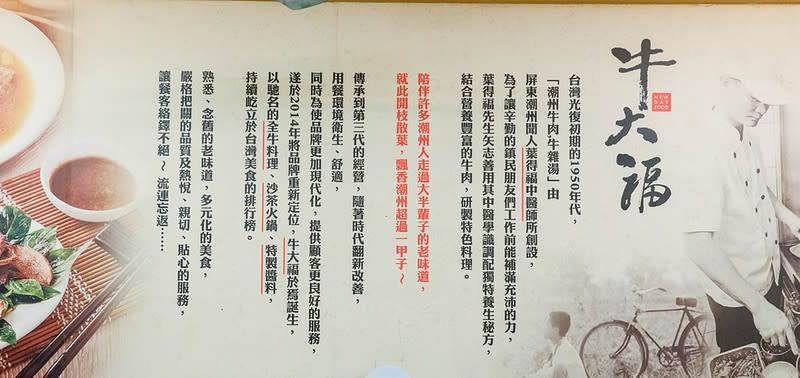 牛大福
NEW
DAY
FOOD
台灣光復初期的1950年代，
「潮州牛肉/牛雜湯」由
屏東潮州聞人葉得福中醫師所創設，
為了讓辛勤的鎮民朋友們工作前能補滿充沛的力，
葉得福先生矢志善用其中醫學識調配獨特養生秘方，
結合營養豐富的牛肉，研製特色料理。
陪伴許多潮州人走過大半輩子的老味道，
就此開枝散葉，飄香潮州超過一甲子～
傳承到第三代的經營，隨著時代翻新改善，
用餐環境衛生、舒適，
同時為使品牌更加現代化，提供顧客更良好的服務，
遂於2014年將品牌重新定位，牛大福於焉誕生，
以馳名的全牛料理、沙茶火鍋、特製醬料，
持續屹立於台灣美食的排行榜。
熟悉、念舊的老味道，多元化的美食，
嚴格把關的品質及熱悅、親切、貼心的服務，
讓饕客絡繹不絕～流連忘返……